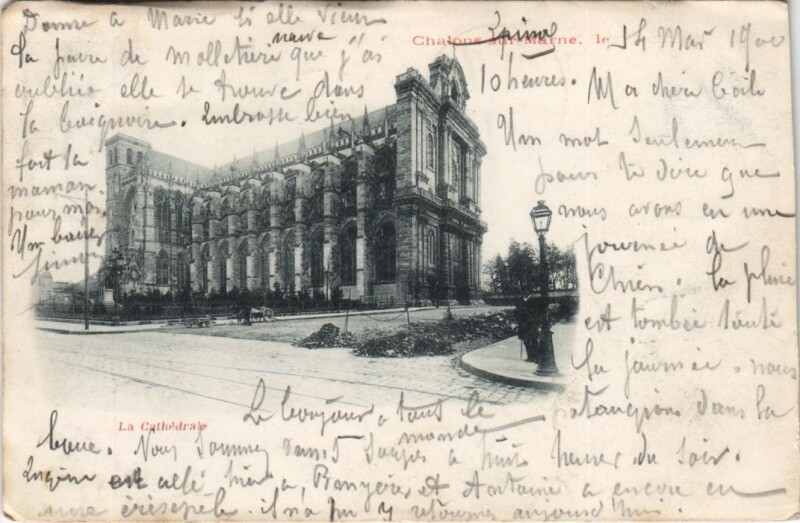 Chalons-sur-Marne, le 14 Mai 1900
10 heures.
Ma chère
Un mot seulement
pour te dire que
nous avons eu une
journée de
Chien. la pluie
est tombée toute
la journée. nous
patangions dans la
boue. Nous sommes
soupés a huit heures du soir.
Eugène est allé hier a, et Antoine a encore eu
une érésipèle. il n'a pu y retourner aujourd'hui.
Le bonjour a tout le
monde
Donne a Marie si elle vient
la paire de molletière neuve que j'ai
oubliée elle se trouve dans
la baignoire. Embrasse bien
fort la
maman
pour moi
Un baiser
La Cathédrale